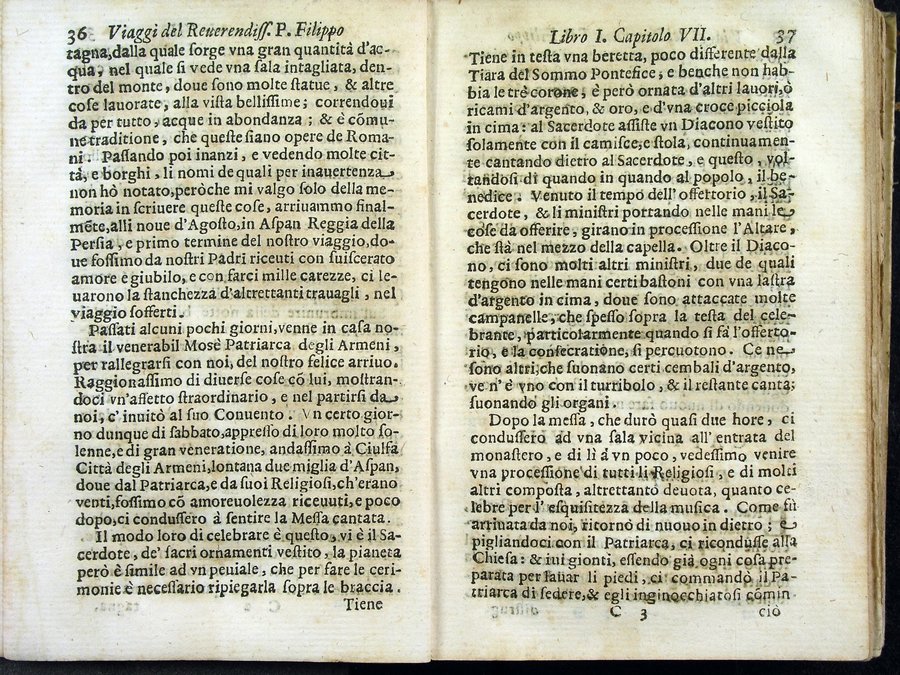 36 Viaggi del Reuerendiſſ. P. Filippo
tagna, dalla quale ſorge vna gran quantità d'ac-
qua, nel quale ſi vede vna ſala intagliata, den-
tro del monte, doue ſono molte ſtatue, & altre
coſe lauorate, alla viſta belliſſime; correndoui
da per tutto, acque in abondanza; & è cõmu-
ne traditione, che queſte ſiano opere de Roma-
ni. Paſſando poi inanzi, e vedendo molte cit-
tà, e borghi, li nomi de quali per inauertenza
non hò notato, peròche mi valgo ſolo della me-
moria in ſcriuere queſte coſe, arriuammo final-
mẽte, alli noue d'Agoſto, in Aſpan Reggia della
Perſia, e primo termine del noſtro viaggio, do-
ue foſſimo da noſtri Padri riceuti con ſuiſcerato
amore e giubilo, e con farci mille carezze, ci le-
uarono la ſtanchezza d'altrettanti trauagli, nel
viaggio ſofferti.
Paſſati alcuni pochi giorni, venne in caſa no-
ſtra il venerabil Mosè Patriarca degli Armeni,
per rallegrarſi con noi, del noſtro felice arriuo.
Raggionaſſimo di diuerſe coſe cõ lui, moſtran-
doci vn'affetto ſtraordinario, e nel partirſi da
noi, c'inuitò al ſuo Conuento. Vn certo gior-
no dunque di ſabbato, appreſſo di loro molto ſo-
lenne, e di gran veneratione, andaſſimo à Ciulfa
Città degli Armeni, lontana due miglia d'Aſpan,
doue dal Patriarca, e da ſuoi Religioſi, ch'erano
venti, foſſimo cõ amoreuolezza riceuuti, e poco
dopo, ci conduſſero à ſentire la Meſſa cantata.
Il modo loro di celebrare è queſto, vi è il Sa-
cerdote, de' ſacri ornamenti veſtito, la pianeta
però è ſimile ad vn peniale, che per fare le ceri-
monie è neceſſario ripiegarla ſopra le braccia.
Tiene
Libro I. Capitolo VII. 37
Tiene in teſta vna beretta, poco differente dalla
Tiara del Sommo Pontefice, e benche non hab-
bia le trè corone, è però ornata d'altri lauori, ò
ricami d'argento, & oro, e d'vna croce picciola
in cima: al Sacerdote aſſiſte vn Diacono veſtito
ſolamente con il camiſce, e ſtola, continuamen-
te cantando dietro al Sacerdote, e queſto, vol-
tandoſi di quando in quando al popolo, il be-
nedice. Venuto il tempo dell'offertorio, il Sa-
cerdote, & li miniſtri portando nelle mani le
coſe da offerire, girano in proceſſione l'Altare,
che ſtà nel mezzo della capella. Oltre il Diaco-
no, ci ſono molti altri miniſtri, due de quali
tengono nelle mani certi baſtoni con vna laſtra
d'argento in cima, doue ſono attaccate molte
campanelle, che ſpeſſo ſopra la teſta del cele-
brante, particolarmente quando ſi fà l'offerto-
rio, e la conſecratione, ſi percuotono. Ce ne
ſono altri; che ſuonano certi cembali d'argento,
ve n'è vno con il turribolo, & il reſtante canta;
ſuonando gli organi.
Dopo la meſſa, che durò quaſi due hore, ci
conduſſero ad vna ſala vicina all'entrata del
monaſtero, e di lì à vn poco, vedeſſimo venire
vna proceſſione di tutti li Religioſi, e di molti
altri compoſta, altrettanto deuota, quanto ce-
lebre per l'eſquiſitezza della muſica. Come fù
arriuata da noi, ritornò di nuouo in dietro; e
pigliandoci con il Patriarca, ci riconduſſe alla
Chieſa: & iui gionti, eſſendo già ogni coſa pre-
parata per lauar li piedi, ci commandò il Pa-
triarca di ſedere, & egli inginocchiatoſi comin
C 3 ciò